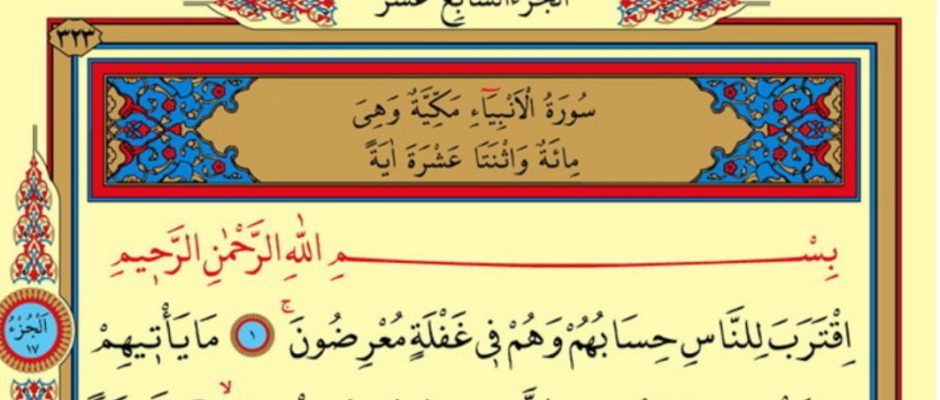 الجزء السابع عشر
٣٢٣
سُورَةُ الْاَنْبِيَٓاءِ مَكِّيَّةٌ وَهِىَ
مِائَةٌ وَاثْنَتَا عَشْرَةَ اٰيَةً
بِسْمِ اللّٰهِ الرَّحْمٰنِ الرَّحٖيمِ
اِقْتَرَبَ لِلنَّاسِ حِسَابُهُمْ وَهُمْ فٖى غَفْلَةٍ مُعْرِضُونَۚ ١ مَا يَأْتٖيهِمْ
اَلْجُزْءُ
١٧